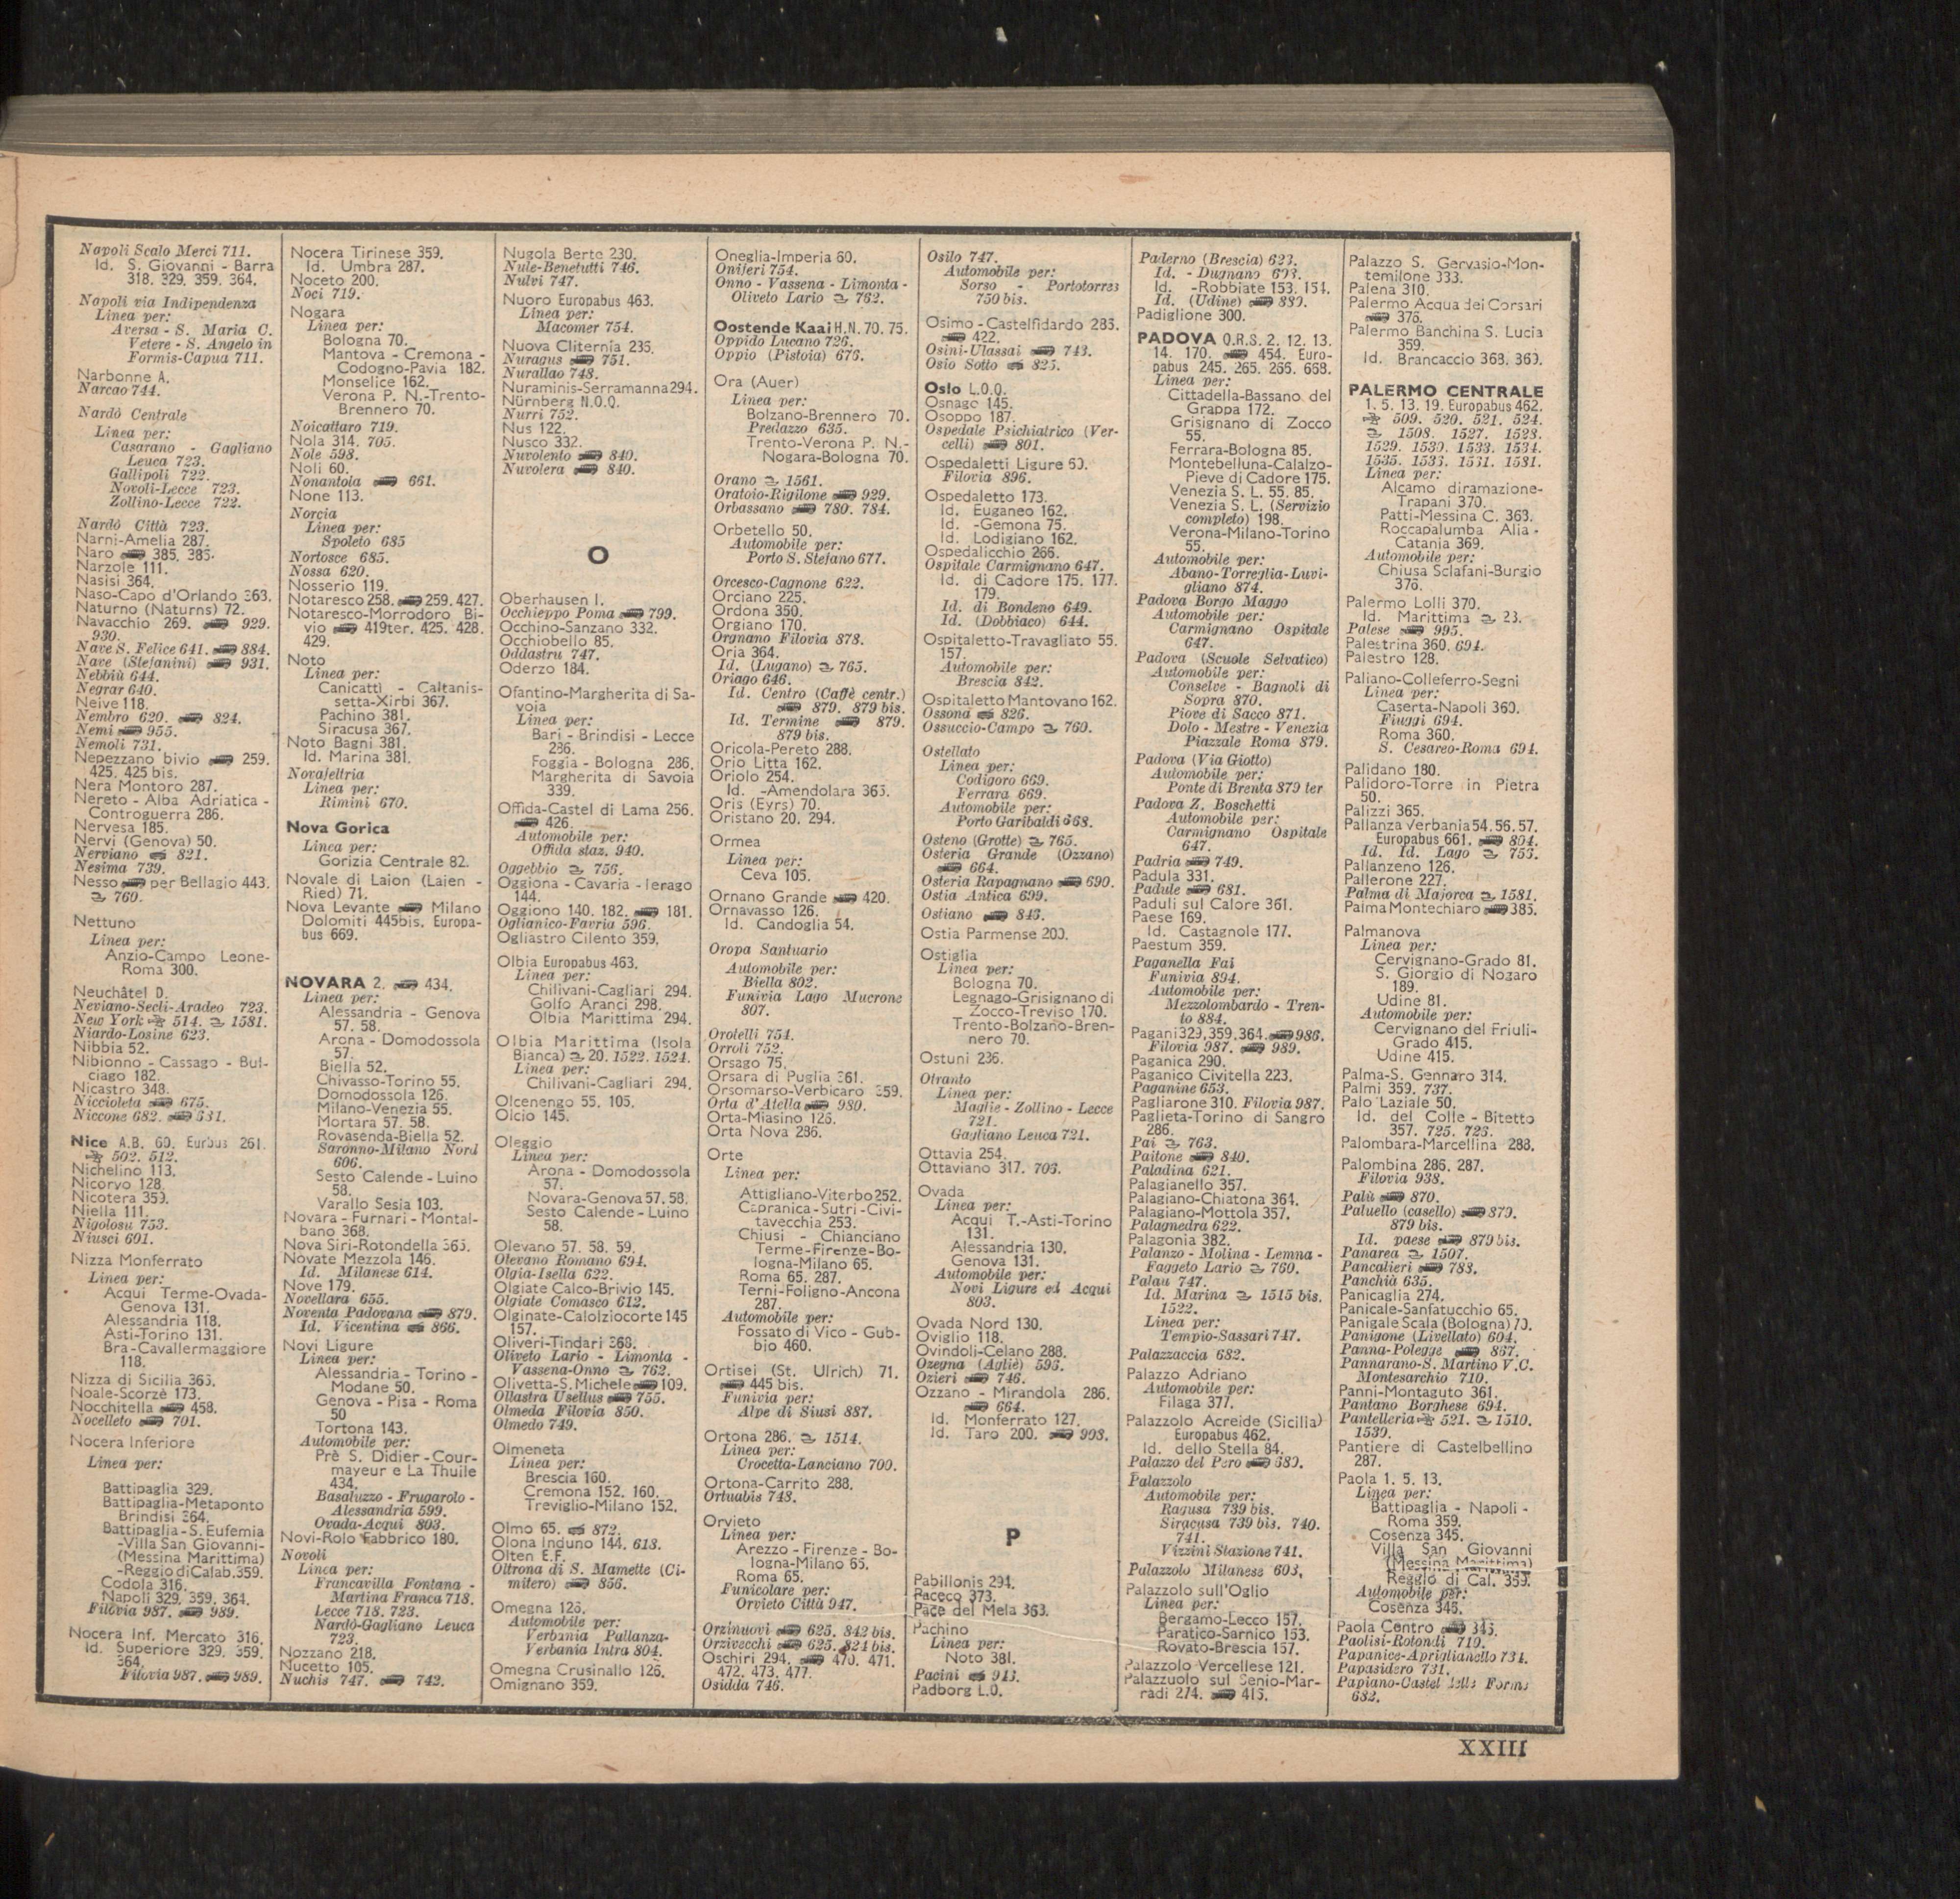 Napoli Scalo Merci 711.
Id. S. Giovanni - Barra
318. 329. 359. 364.
Napoli via Indipendenza
Linea per:
Aversa - S. Maria C.
Vetere - S. Angelo in
Formis-Capua 711.
Narbonne A.
Narcao 744.
Nardò Centrale
Linea per:
Casarano - Gagliano
Leuca 723.
Gallipoli 722.
Novoli-Lecce 723.
Zollino-Lecce 722.
Nardò Città 723.
Narni-Amelia 287.
Naro 385. 386.
Narzole 111.
Nasisi 364.
Naso-Capo d'Orlando 363.
Naturno (Naturns) 72.
Navacchio 269. 929.
930.
Nave S. Felice 641. 884.
Nave (Stefanini) 931.
Nebbiù 644.
Negrar 640.
Neive 118.
Nembro 620. 824.
Nemi 955.
Nemoli 731.
Nepezzano bivio 259.
425. 425 bis.
Nera Montoro 287.
Nereto - Alba Adriatica -
Controguerra 286.
Nervesa 185.
Nervi (Genova) 50.
Nerviano 821.
Nesima 739.
Nesso per Bellagio 443.
760.
Nettuno
Linea per:
Anzio-Campo Leone-
Roma 300.
Neuchâtel D.
Neviano-Seclì-Aradeo 723.
New York 514. 1581.
Niardo-Losine 623.
Nibbia 52.
Nibionno - Cassago - Bul-
ciago 182.
Nicastro 348.
Niccioleta 675.
Niccone 682. 931.
Nice A.B. 60. Eurbus 261.
502. 512.
Nichelino 113.
Nicorvo 128.
Nicotera 359.
Niella 111.
Nigolosu 753.
Niusci 601.
Nizza Monferrato
Linea per:
Acqui Terme-Ovada-
Genova 131.
Alessandria 118.
Asti-Torino 131.
Bra-Cavallermaggiore
118.
Nizza di Sicilia 365.
Noale-Scorzè 173.
Nocchitella 458.
Nocelleto 701.
Nocera Inferiore
Linea per:
Battipaglia 329.
Battipaglia-Metaponto
Brindisi 364.
Battipaglia-S. Eufemia
-Villa San Giovanni-
(Messina Marittima)
-Reggio di Calab. 359.
Codola 316.
Napoli 329. 359. 364.
Filovia 987. 989.
Nocera Inf. Mercato 316.
Id. Superiore 329. 359.
364.
Filovia 987. 989.
Nocera Tirinese 359.
Id. Umbra 287.
Noceto 200.
Noci 719.
Nogara
Linea per:
Bologna 70.
Mantova - Cremona -
Codogno-Pavia 182.
Monselice 162.
Verona P. N.-Trento-
Brennero 70.
Noicattaro 719.
Nola 314. 705.
Nole 598.
Noli 60.
Nonantola 661.
None 113.
Norcia
Linea per:
Spoleto 685
Nortosce 685.
Nossa 620.
Nosserio 119.
Notaresco 258. 259. 427.
Notaresco-Morrodoro Bi-
vio 419ter. 425. 428.
429.
Noto
Linea per:
Canicattì - Caltanis-
setta-Xirbi 367.
Pachino 381.
Siracusa 367.
Noto Bagni 381.
Id. Marina 381.
Novafeltria
Linea per:
Rimini 670.
Nova Gorica
Linea per:
Gorizia Centrale 82.
Novale di Laion (Laien -
Ried) 71.
Nova Levante Milano
Dolomiti 445bis. Europa-
bus 669.
NOVARA 2. 434.
Linea per:
Alessandria - Genova
57. 58.
Arona - Domodossola
57.
Biella 52.
Chivasso-Torino 55.
Domodossola 126.
Milano-Venezia 55.
Mortara 57. 58.
Rovasenda-Biella 52.
Saronno-Milano Nord
606.
Sesto Calende - Luino
58.
Varallo Sesia 103.
Novara - Furnari - Montal-
bano 368.
Nova Siri-Rotondella 365.
Novate Mezzola 146.
Id. Milanese 614.
Nove 179.
Novellara 655.
Noventa Padovana 879.
Id. Vicentina 866.
Novi Ligure
Linea per:
Alessandria - Torino -
Modane 50.
Genova - Pisa - Roma
50
Tortona 143.
Automobile per:
Prè S. Didier - Cour-
mayeur e La Thuile
434.
Basaluzzo - Frugarolo -
Alessandria 599.
Ovada-Acqui 803.
Novi-Rolo Fabbrico 180.
Novoli
Linea per:
Francavilla Fontana -
Martina Franca 718.
Lecce 718. 723.
Nardò-Gagliano Leuca
723.
Nozzano 218.
Nucetto 105.
Nuchis 747. 742.
Nugola Berte 230.
Nule-Benetutti 746.
Nulvi 747.
Nuoro Europabus 463.
Linea per:
Macomer 754.
Nuova Cliternia 236.
Nuragus 751.
Nurallao 748.
Nuraminis-Serramanna 294.
Nürnberg N.O.Q.
Nurri 752.
Nus 122.
Nusco 332.
Nuvolento 840.
Nuvolera 840.
O
Oberhausen I.
Occhieppo Poma 799.
Occhino-Sanzano 332.
Occhiobello 85.
Oddastru 747.
Oderzo 184.
Ofantino-Margherita di Sa-
voia
Linea per:
Bari - Brindisi - Lecce
286.
Foggia - Bologna 286.
Margherita di Savoia
339.
Offida-Castel di Lama 256.
426.
Automobile per:
Offida staz. 940.
Oggebbio 756.
Oggiona - Cavaria - Ierago
144.
Oggiono 140. 182. 181.
Oglianico-Favria 596.
Ogliastro Cilento 359.
Olbia Europabus 463.
Linea per:
Chilivani-Cagliari 294.
Golfo Aranci 298.
Olbia Marittima 294.
Olbia Marittima (Isola
Bianca) 20. 1522. 1524.
Linea per:
Chilivani-Cagliari 294.
Olcenengo 55. 105.
Olcio 145.
Oleggio
Linea per:
Arona - Domodossola
57.
Novara-Genova 57. 58.
Sesto Calende - Luino
58.
Olevano 57. 58. 59.
Olevano Romano 694.
Olgia-Isella 622.
Olgiate Calco-Brivio 145.
Olgiate Comasco 612.
Olginate-Calolziocorte 145
157.
Oliveri-Tindari 368.
Oliveto Lario - Limonta -
Vassena-Onno 762.
Olivetta-S. Michele 109.
Ollastra Usellus 755.
Olmeda Filovia 850.
Olmedo 749.
Olmeneta
Linea per:
Brescia 160.
Cremona 152. 160.
Treviglio-Milano 152.
Olmo 65. 872.
Olona Induno 144. 618.
Olten E.F.
Oltrona di S. Mamette (Ci-
mitero) 856.
Omegna 126.
Automobile per:
Verbania Pallanza-
Verbania Intra 804.
Omegna Crusinallo 126.
Omignano 359.
Oneglia-Imperia 60.
Oniferi 754.
Onno - Vassena - Limonta -
Oliveto Lario 762.
Oostende Kaai H.N. 70. 75.
Oppido Lucano 726.
Oppio (Pistoia) 676.
Ora (Auer)
Linea per:
Bolzano-Brennero 70.
Predazzo 635.
Trento-Verona P. N.-
Nogara-Bologna 70.
Orano 1561.
Oratoio-Rigilone 929.
Orbassano 780. 784.
Orbetello 50.
Automobile per:
Porto S. Stefano 677.
Orcesco-Cagnone 622.
Orciano 225.
Ordona 350.
Orgiano 170.
Orgnano Filovia 878.
Oria 364.
Id. (Lugano) 765.
Oriago 646.
Id. Centro (Caffè centr.)
879. 879 bis.
Id. Termine 879.
879 bis.
Oricola-Pereto 288.
Orio Litta 162.
Oriolo 254.
Id. -Amendolara 365.
Oris (Eyrs) 70.
Oristano 20. 294.
Ormea
Linea per:
Ceva 105.
Ornano Grande 420.
Ornavasso 126.
Id. Candoglia 54.
Oropa Santuario
Automobile per:
Biella 802.
Funivia Lago Mucrone
807.
Orotelli 754.
Orroli 752.
Orsago 75.
Orsara di Puglia 361.
Orsomarso-Verbicaro 359.
Orta d'Atella 980.
Orta-Miasino 126.
Orta Nova 286.
Orte
Linea per:
Attigliano-Viterbo 252.
Capranica-Sutri-Civi-
tavecchia 253.
Chiusi - Chianciano
Terme-Firenze-Bo-
logna-Milano 65.
Roma 65. 287.
Terni-Foligno-Ancona
287.
Automobile per:
Fossato di Vico - Gub-
bio 460.
Ortisei (St. Ulrich) 71.
445 bis.
Funivia per:
Alpe di Siusi 887.
Ortona 286. 1514.
Linea per:
Crocetta-Lanciano 700.
Ortona-Carrito 288.
Ortuabis 748.
Orvieto
Linea per:
Arezzo - Firenze - Bo-
logna-Milano 65.
Roma 65.
Funicolare per:
Orvieto Città 947.
Orzinuovi 625. 842 bis.
Orzivecchi 625. 824 bis.
Oschiri 294. 470. 471.
472. 473. 477.
Osidda 746.
Osilo 747.
Automobile per:
Sorso - Portotorres
750 bis.
Osimo - Castelfidardo 286.
422.
Osini-Ulassai 743.
Osio Sotto 825.
Oslo L.O.Q.
Osnago 145.
Osoppo 187.
Ospedale Psichiatrico (Ver-
celli) 801.
Ospedaletti Ligure 60.
Filovia 896.
Ospedaletto 173.
Id. Euganeo 162.
Id. -Gemona 75.
Id. Lodigiano 162.
Ospedalicchio 266.
Ospitale Carmignano 647.
Id. di Cadore 175. 177.
179.
Id. di Bondeno 649.
Id. (Dobbiaco) 644.
Ospitaletto-Travagliato 55.
157.
Automobile per:
Brescia 842.
Ospitaletto Mantovano 162.
Ossona 826.
Ossuccio-Campo 760.
Ostellato
Linea per:
Codigoro 669.
Ferrara 669.
Automobile per:
Porto Garibaldi 668.
Osteno (Grotte) 765.
Osteria Grande (Ozzano)
664.
Osteria Rapagnano 690.
Ostia Antica 699.
Ostiano 843.
Ostia Parmense 200.
Ostiglia
Linea per:
Bologna 70.
Legnago-Grisignano di
Zocco-Treviso 170.
Trento-Bolzano-Bren-
nero 70.
Ostuni 236.
Otranto
Linea per:
Maglie - Zollino - Lecce
721.
Gagliano Leuca 721.
Ottavia 254.
Ottaviano 317. 706.
Ovada
Linea per:
Acqui T.-Asti-Torino
131.
Alessandria 130.
Genova 131.
Automobile per:
Novi Ligure ed Acqui
803.
Ovada Nord 130.
Oviglio 118.
Ovindoli-Celano 288.
Ozegna (Agliè) 596.
Ozieri 746.
Ozzano - Mirandola 286.
664.
Id. Monferrato 127.
Id. Taro 200. 908.
P
Pabillonis 294.
Paceco 373.
Pace del Mela 363.
Pachino
Linea per:
Noto 381.
Pacini 943.
Padborg L.O.
Paderno (Brescia) 623.
Id. - Dugnano 603.
Id. -Robbiate 153. 154.
Id. (Udine) 880.
Padiglione 300.
PADOVA O.R.S. 2. 12. 13.
14. 170. 454. Euro-
pabus 245. 265. 266. 668.
Linea per:
Cittadella-Bassano del
Grappa 172.
Grisignano di Zocco
55.
Ferrara-Bologna 85.
Montebelluna-Calalzo-
Pieve di Cadore 175.
Venezia S. L. 55. 85.
Venezia S. L. (Servizio
completo) 198.
Verona-Milano-Torino
55.
Automobile per:
Abano-Torreglia-Luvi-
gliano 874.
Padova Borgo Maggo
Automobile per:
Carmignano Ospitale
647.
Padova (Scuole Selvatico)
Automobile per:
Conselve - Bagnoli di
Sopra 870.
Piove di Sacco 871.
Dolo - Mestre - Venezia
Piazzale Roma 879.
Padova (Via Giotto)
Automobile per:
Ponte di Brenta 879 ter
Padova Z. Boschetti
Automobile per:
Carmignano Ospitale
647.
Padria 749.
Padula 331.
Padule 681.
Paduli sul Calore 361.
Paese 169.
Id. Castagnole 177.
Paestum 359.
Paganella Fai
Funivia 894.
Automobile per:
Mezzolombardo - Tren-
to 884.
Pagani 329,359,364. 986.
Filovia 987. 989.
Paganica 290.
Paganico Civitella 223.
Paganine 653.
Pagliarone 310. Filovia 987.
Paglieta-Torino di Sangro
286.
Pai 763.
Paitone 840.
Paladina 621.
Palagianello 357.
Palagiano-Chiatona 364.
Palagiano-Mottola 357.
Palagnedra 622.
Palagonia 382.
Palanzo - Molina - Lemna -
Faggeto Lario 760.
Palau 747.
Id. Marina 1515 bis.
1522.
Linea per:
Tempio-Sassari 747.
Palazzaccia 682.
Palazzo Adriano
Automobile per:
Filaga 377.
Palazzolo Acreide (Sicilia)
Europabus 462.
Id. dello Stella 84.
Palazzo del Pero 689.
Palazzolo
Automobile per:
Ragusa 739 bis.
Siracusa 739 bis. 740.
741.
Vizzini Stazione 741.
Palazzolo Milanese 603.
Palazzolo sull'Oglio
Linea per:
Bergamo-Lecco 157.
Paratico-Sarnico 153.
Rovato-Brescia 157.
Palazzolo Vercellese 121.
Palazzuolo sul Senio-Mar-
radi 274. 415.
Palazzo S. Gervasio-Mon-
temilone 333.
Palena 310.
Palermo Acqua dei Corsari
376.
Palermo Banchina S. Lucia
359.
Id. Brancaccio 368. 369.
PALERMO CENTRALE
1. 5. 13. 19. Europabus 462.
509. 520. 521. 524.
1508. 1527. 1528.
1529. 1530. 1533. 1534.
1535. 1533. 1531. 1581.
Linea per:
Alcamo diramazione-
Trapani 370.
Patti-Messina C. 363.
Roccapalumba Alia -
Catania 369.
Automobile per:
Chiusa Sclafani-Burgio
376.
Palermo Lolli 370.
Id. Marittima 23.
Palese 995.
Palestrina 360. 694.
Palestro 128.
Paliano-Colleferro-Segni
Linea per:
Caserta-Napoli 360.
Fiuggi 694.
Roma 360.
S. Cesareo-Roma 694.
Palidano 180.
Palidoro-Torre in Pietra
50.
Palizzi 365.
Pallanza Verbania 54. 56. 57.
Europabus 661. 804.
Id. Id. Lago 756.
Pallanzeno 126.
Pallerone 227.
Palma di Majorca 1581.
Palma Montechiaro 385.
Palmanova
Linea per:
Cervignano-Grado 81.
S. Giorgio di Nogaro
189.
Udine 81.
Automobile per:
Cervignano del Friuli-
Grado 415.
Udine 415.
Palma-S. Gennaro 314.
Palmi 359. 737.
Palo Laziale 50.
Id. del Colle - Bitetto
357. 725. 726.
Palombara-Marcellina 288.
Palombina 286. 287.
Filovia 938.
Palù 870.
Paluello (casello) 879.
879 bis.
Id. paese 879 bis.
Panarea 1507.
Pancalieri 788.
Panchià 635.
Panicaglia 274.
Panicale-Sanfatucchio 65.
Panigale Scala (Bologna) 70.
Panigone (Livellato) 604.
Panna-Polegge 867.
Pannarano-S. Martino V.C.
Montesarchio 710.
Panni-Montaguto 361.
Pantano Borghese 694.
Pantelleria 521. 1510.
1530.
Pantiere di Castelbellino
287.
Paola 1. 5. 13.
Linea per:
Battipaglia - Napoli -
Roma 359.
Cosenza 345.
Villa San Giovanni
(Messina Marittima)
Reggio di Cal. 359.
Automobile per:
Cosenza 345.
Paola Centro 345.
Paolisi-Rotondi 710.
Papanice-Apriglianello 734.
Papasidero 731.
Papiano-Castel delle Forme
682.
XXIII